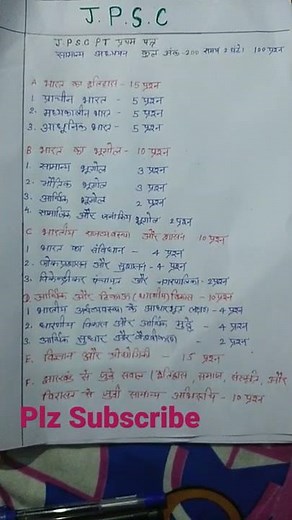 J.P.S.C
JPSC PT प्रथम पत्र
सामान्य अध्ययन कुल अंक-200 समय 2 घंटे। 100 प्रश्न
A भारत का इतिहास - 15 प्रश्न
1 प्राचीन भारत - 5 प्रश्न
2. मध्यकालीन भारत - 5 प्रश्न
3. आधुनिक भारत - 5 प्रश्न
B भारत का भूगोल - 10 प्रश्न
1. सामान्य भूगोल 3 प्रश्न
2. भौतिक भूगोल 3 प्रश्न
3. आर्थिक भूगोल 2 प्रश्न
4. सामाजिक और जनांकिय भूगोल 2 प्रश्न
C भारतीय और शासन 10 प्रश्न
1 भारत का संविधान - 4 प्रश्न
2. लोक प्रशासन और सुशासन - 4 प्रश्न
3. पंचायत और नगरपालिका - 2 प्रश्न
D. आर्थिक और विकास - 10 प्रश्न
1 भारतीय अर्थव्यवस्था के आधारभूत लक्षण - 4 प्रश्न
2. धारणीय विकास और आर्थिक मुद्दे - 4 प्रश्न
3. आर्थिक सुधार और - 2 प्रश्न
E. विज्ञान और प्रौद्योगिकी - 15 प्रश्न
F. झारखंड से जुड़े सवाल (इतिहास समाज, संस्कृति, और
विरासत से जुड़ी सामान्य अभिरूचि - 10 प्रश्न
Plz Subscribe